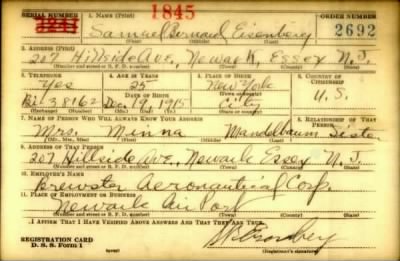 SERIAL NUMBER 1. NAME (Print) 1845 ORDER NUMBER
Samuel Bernard Eisenberg 2692
(First) (Middle) (Last)
2. ADDRESS (Print)
207 Hillside Ave, Newark, Essex N.J.
(Number and street or R. F. D. number) (Town) (County) (State)
3. TELEPHONE 4. AGE IN YEARS 5. PLACE OF BIRTH 6. COUNTRY OF CITIZENSHIP
Yes 25 New York
DATE OF BIRTH U.S.
Bi. 3 8162 Dec 19, 1915 City
7. NAME OF PERSON WHO WILL ALWAYS KNOW YOUR ADDRESS 8. RELATIONSHIP OF THAT PERSON
Mrs. Minna Mandelbaum Sister
(Mr., Mrs., Miss) (First) (Middle) (Last)
9. ADDRESS OF THAT PERSON
207 Hillside Ave, Newark Essex N.J.
(Number and street or R. F. D. number) (Town) (County) (State)
10. EMPLOYER'S NAME
Brewster Aeronautical Corp.
11. PLACE OF EMPLOYMENT OR BUSINESS
Newark Air Port
(Number and street or R. F. D. number) (Town) (County) (State)
I AFFIRM THAT I HAVE VERIFIED ABOVE ANSWERS AND THAT THEY ARE TRUE.
REGISTRATION CARD
D. S. S. Form 1 (Registrant's signature)